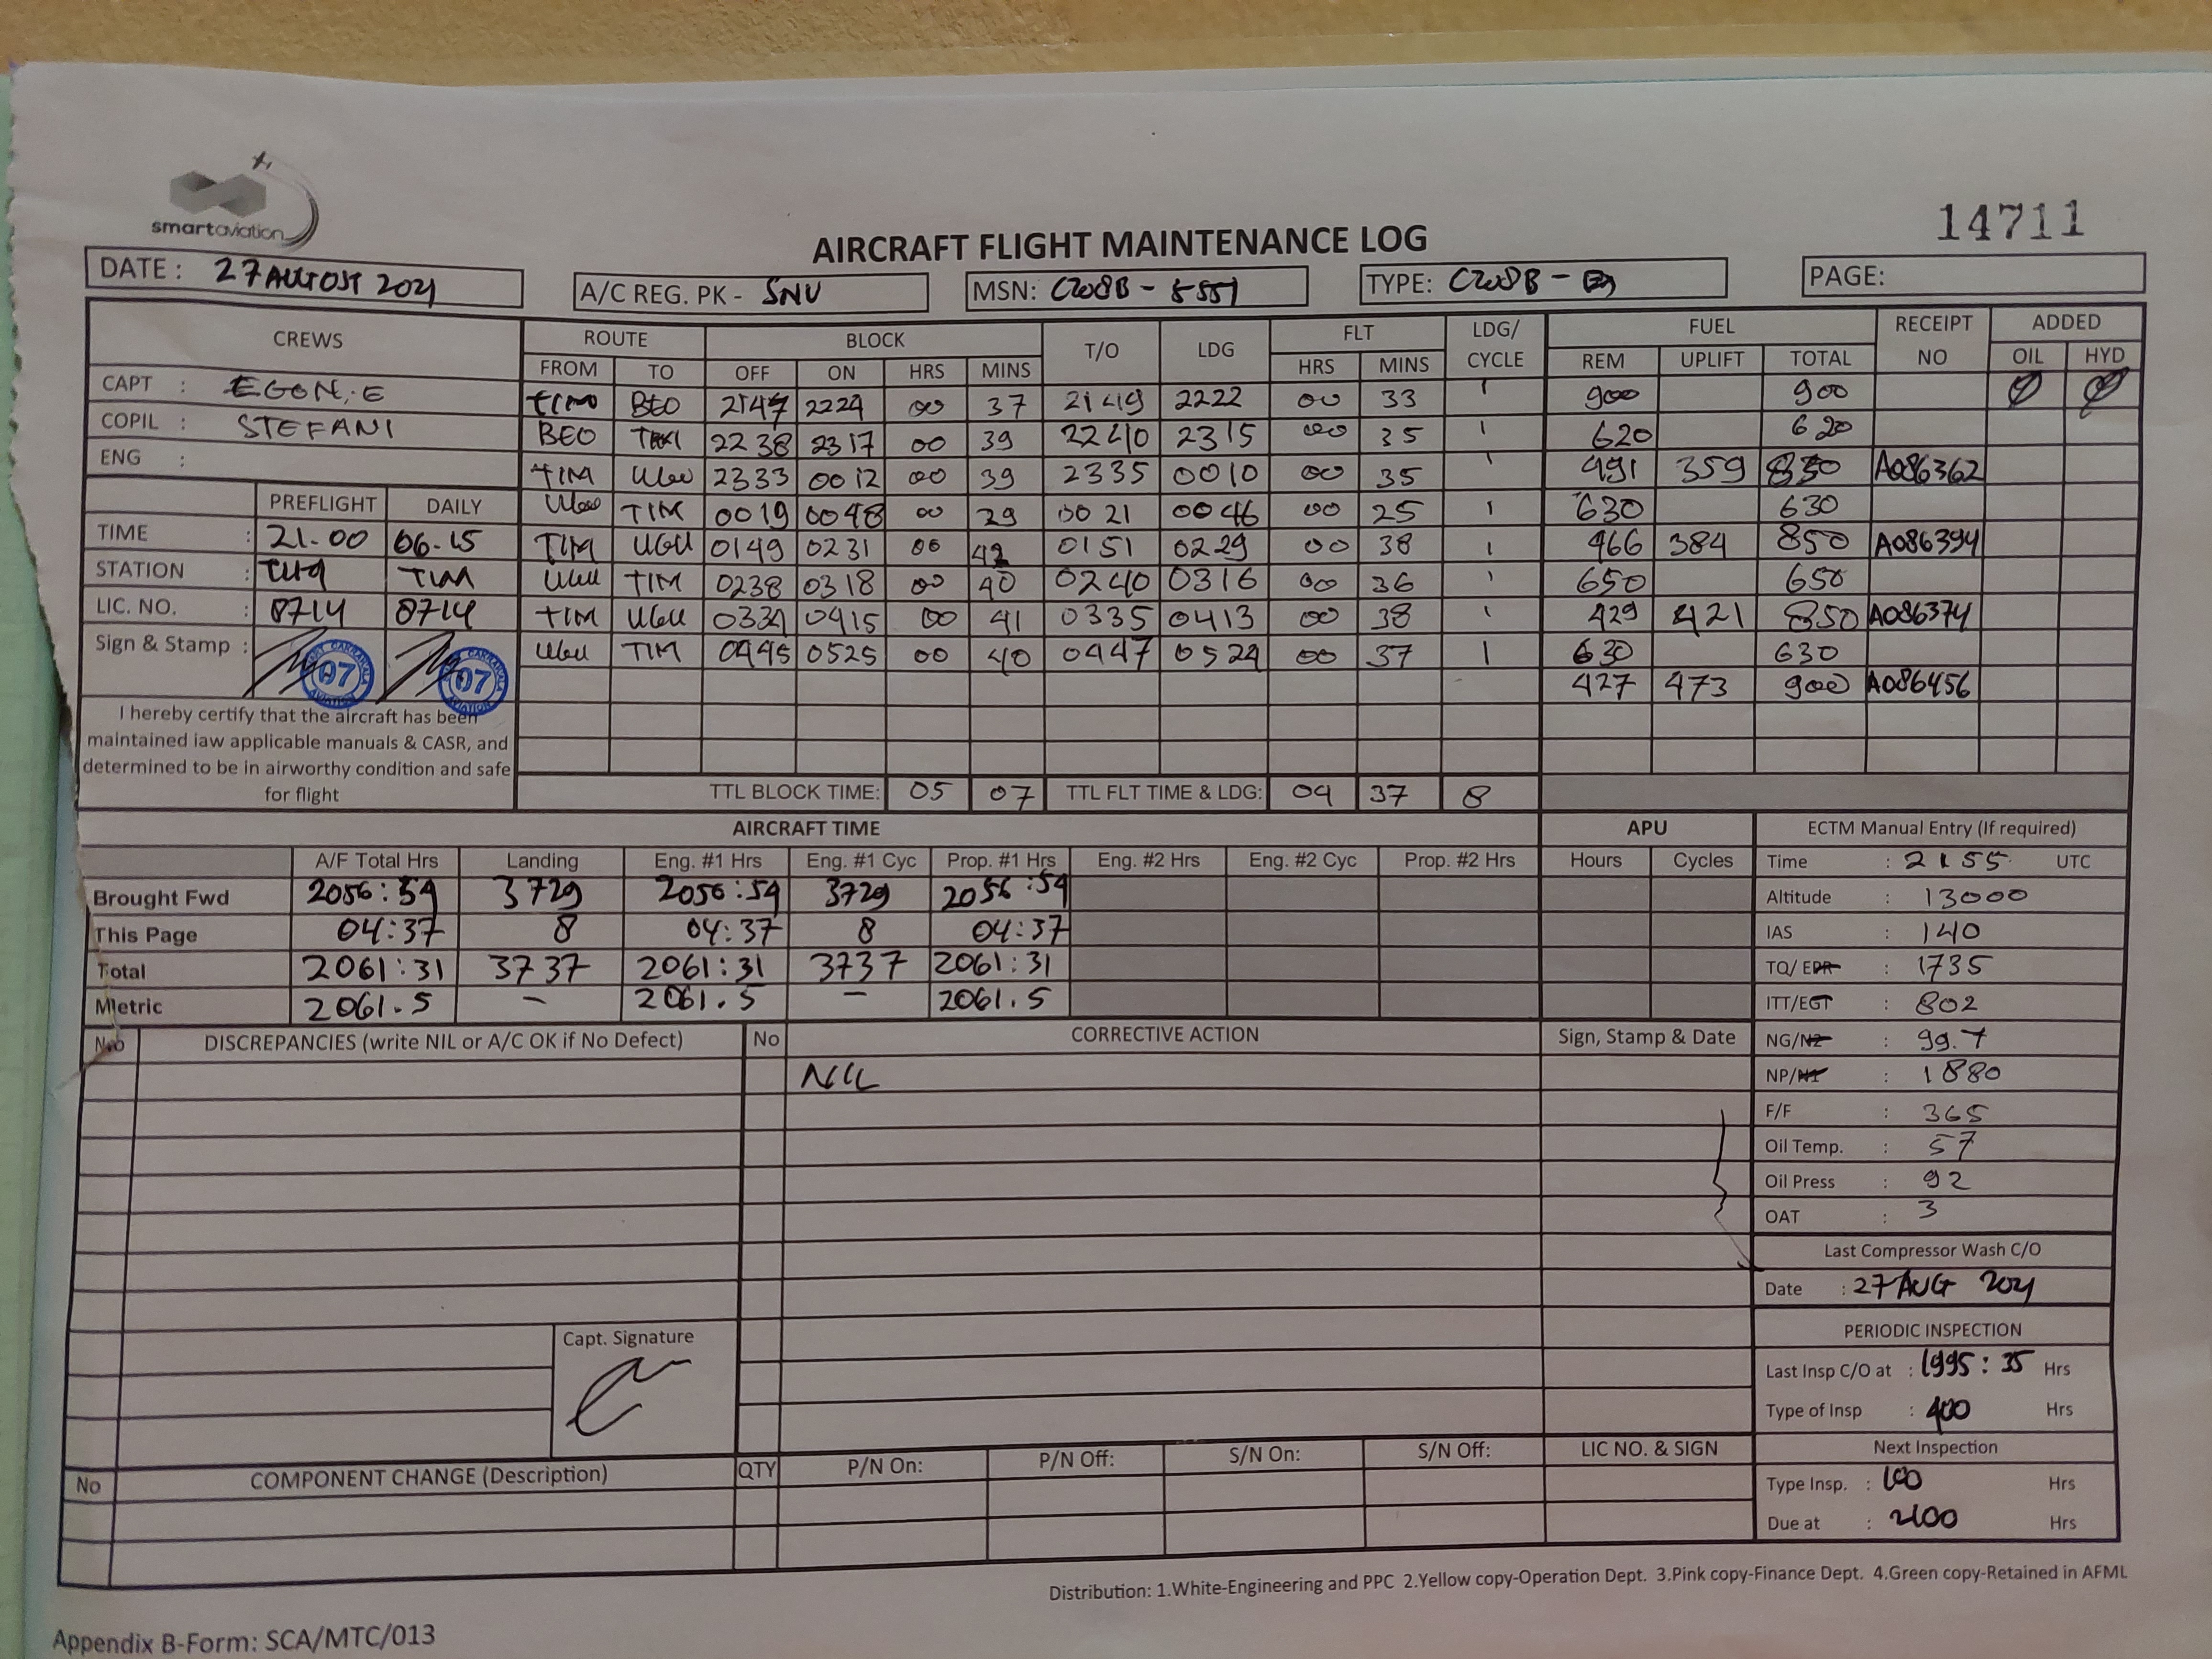 smartaviation
14711
AIRCRAFT FLIGHT MAINTENANCE LOG
DATE : 27 AUGUST 2021
A/C REG. PK - SNU
MSN: C208B - 5551
TYPE: C208B -
PAGE:
CREWS ROUTE BLOCK T/O LDG FLT LDG/CYCLE FUEL RECEIPT NO ADDED
FROM TO OFF ON HRS MINS HRS MINS REM UPLIFT TOTAL OIL HYD
CAPT : EGON. E
COPIL : STEFANI
ENG :
PREFLIGHT DAILY
TIME : 21.00 06.15
STATION : TIM
LIC. NO. : 8714 8714
Sign & Stamp : 07 07
I hereby certify that the aircraft has been
maintained iaw applicable manuals & CASR, and
determined to be in airworthy condition and safe
for flight
BEO 2147 2224 00 37 2149 2222 00 33 1 900 900
BEO 2238 2317 00 39 2240 2315 00 35 1 620 620
TIM 2333 0012 00 39 2335 0010 00 35 1 491 359 850 A086362
TIM 0019 0048 00 29 0021 0046 00 25 1 630 630
TIM UGU 0149 0231 00 42 0151 0229 00 38 1 466 384 850 A086394
UGU TIM 0238 0318 00 40 0240 0316 00 36 1 650 650
TIM UGU 0334 0415 00 41 0335 0413 00 38 1 429 421 850 A086374
UGU TIM 0445 0525 00 40 0447 0524 00 37 1 630 630
427 473 900 A086456
TTL BLOCK TIME: 05 07 TTL FLT TIME & LDG: 04 37 8
AIRCRAFT TIME APU
A/F Total Hrs Landing Eng. #1 Hrs Eng. #1 Cyc Prop. #1 Hrs Eng. #2 Hrs Eng. #2 Cyc Prop. #2 Hrs Hours Cycles
Brought Fwd 2056:54 3729 2056:54 3729 2056:54
This Page 04:37 8 04:37 8 04:37
Total 2061:31 3737 2061:31 3737 2061:31
Metric 2061.5 - 2061.5 - 2061.5
ECTM Manual Entry (If required)
Time : 2155 UTC
Altitude : 13000
IAS : 140
TQ/ EPR : 1735
ITT/EGT : 802
NG/N2 : 99.7
NP/N1 : 1880
F/F : 365
Oil Temp. : 57
Oil Press : 92
OAT : 3
Last Compressor Wash C/O
Date : 27 AUG 2021
PERIODIC INSPECTION
Last Insp C/O at : 1995:35 Hrs
Type of Insp : 400 Hrs
Next Inspection
Type Insp. : 100 Hrs
Due at : 2100 Hrs
No DISCREPANCIES (write NIL or A/C OK if No Defect) No CORRECTIVE ACTION Sign, Stamp & Date
NIL
Capt. Signature
No COMPONENT CHANGE (Description) QTY P/N On: P/N Off: S/N On: S/N Off: LIC NO. & SIGN
Distribution: 1.White-Engineering and PPC 2.Yellow copy-Operation Dept. 3.Pink copy-Finance Dept. 4.Green copy-Retained in AFML
Appendix B-Form: SCA/MTC/013